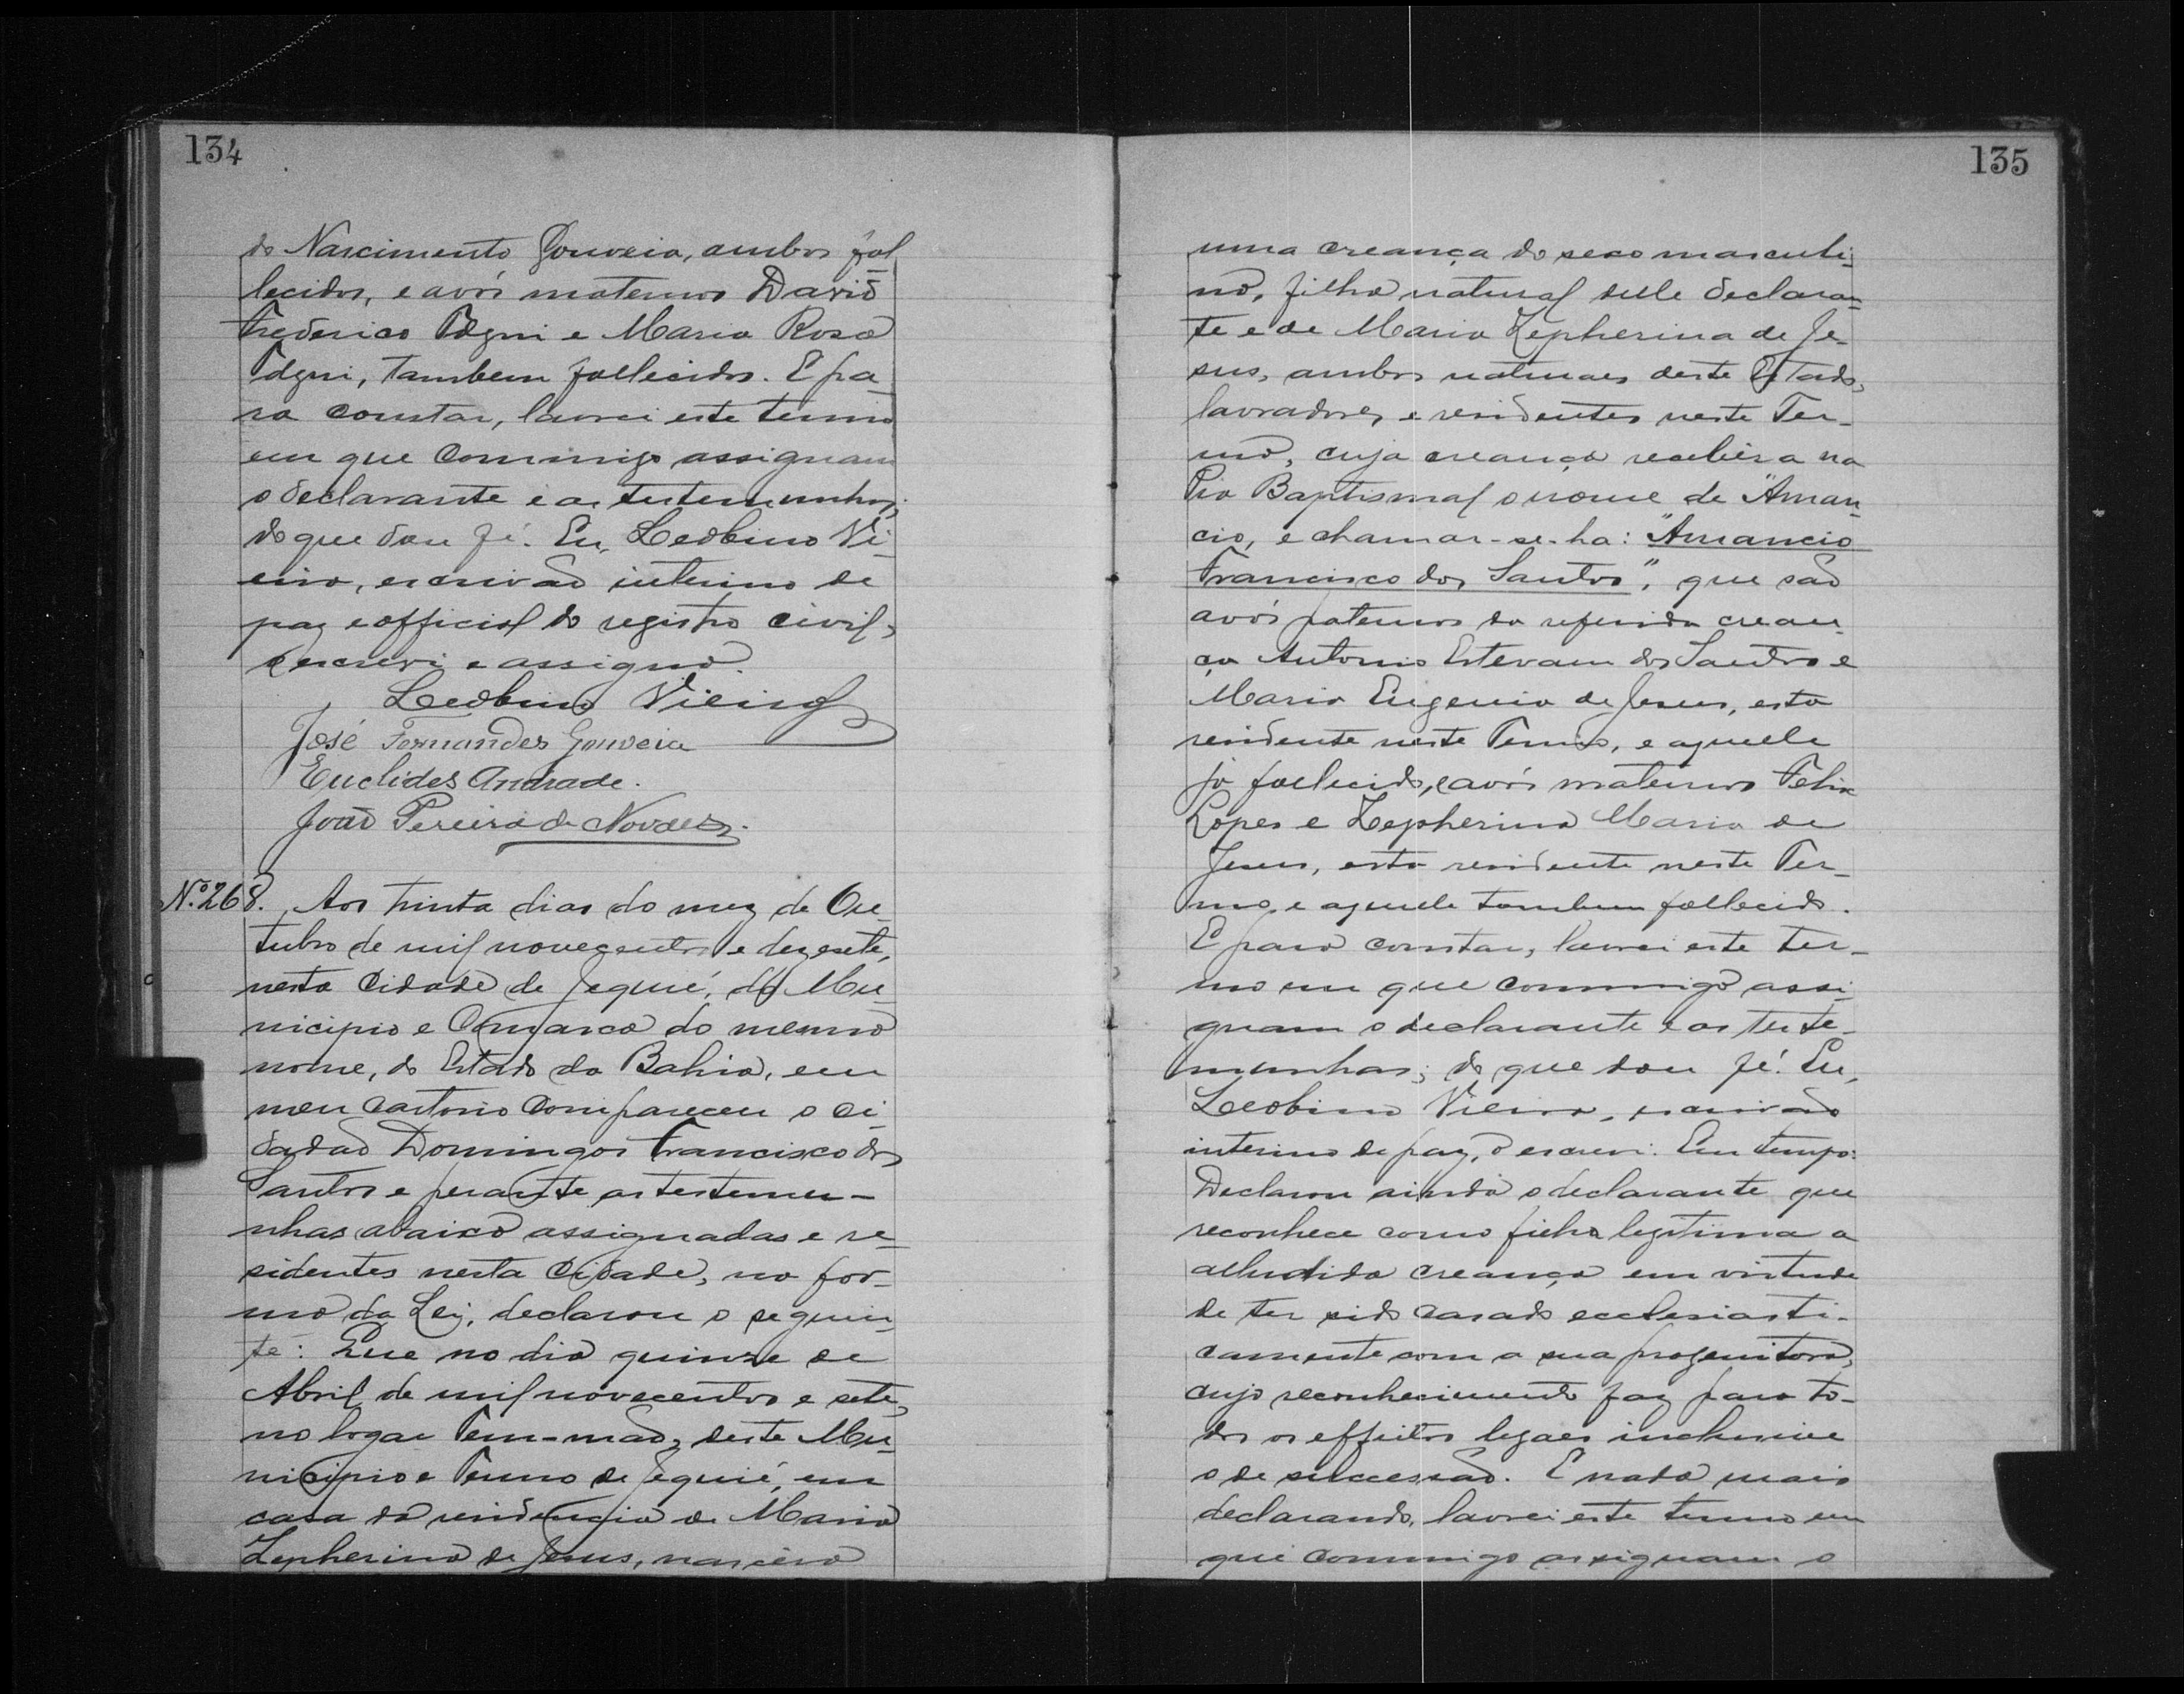 134
do Nascimento Gouveia, ambos fal
lecidos, e avós maternos David
Frederico Togni e Maria Rosa
Togni, tambem fallecidos. E pa-
ra constar, lavrei este termo
em que commigo assignam
o declarante e as testemunhas;
do que dou fé. Eu, Leobino Vi-
eira, escrivão interino de
paz e official do registro civil,
o escrevi e assigno.
Leobino Vieira
José Fernandes Gouveia
Euclides Andrade.
João Pereira de Novaes.
Nº 268. Aos trinta dias do mez de Ou-
tubro de mil novecentos e dezesete,
nesta Cidade de Jequié, do Mu-
nicipio e Comarca do mesmo
nome, do Estado da Bahia, em
meu cartorio compareceu o ci-
dadão Domingos Francisco dos
Santos e perante as testemu-
nhas abaixo assignadas e re-
sidentes nesta Cidade, na for-
ma da Lei, declarou o seguin-
te: Que no dia quinze de
Abril de mil novecentos e sete,
no logar Tem-mão, deste Mu-
nicipio e Termo de Jequié, em
casa da residencia de Maria
Zepherina de Jesus, nascêra
135
uma creança do sexo masculi-
no, filha natural delle declaran-
te e de Maria Zepherina de Je-
sus, ambos naturaes deste Estado,
lavradores e residentes neste Ter-
mo, cuja creança recebêra na
Pia Baptismal o nome de "Aman-
cio, e chamar-se-ha: "Amancio
Francisco dos Santos", que são
avós paternos da referida crean-
ça Antonio Estevam dos Santos e
Maria Eugenia de Jesus, esta
residente neste Termo, e aquelle
já fallecido, e avós maternos Felix
Lopes e Zepherina Maria de
Jesus, esta residente neste Ter-
mo, e aquelle tambem fallecido.
E para constar, lavrei este ter-
mo em que commigo assi-
gnam o declarante e as teste-
munhas; do que dou fé. Eu,
Leobino Vieira, escrivão
interino de paz, o escrevi. Em tempo:
Declarou ainda o declarante que
reconhece como filha legitima a
alludida creança em virtude
de ter sido casado ecclesiasti-
camente com a sua progenitora,
cujo reconhecimento faz para to-
dos os effeitos legaes inclusive
o de successão. E nada mais
declarando, lavrei este termo em
que commigo assignam o